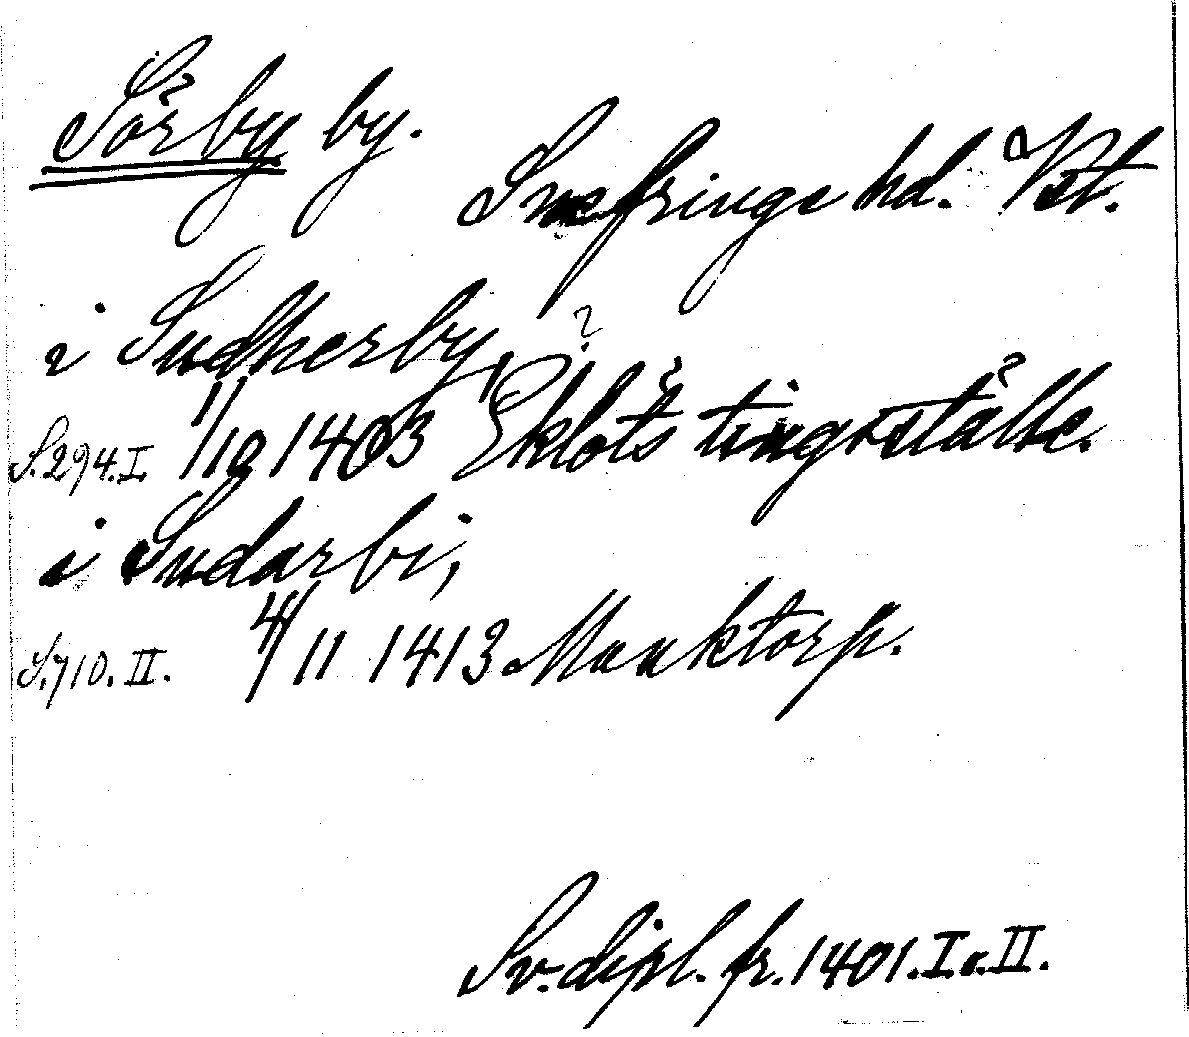 Sörby by.
Snefringe hd. Vst.
i Sudherby, ?
S. 294. I. 1/10 1403 Eklöts tingsställe.
i Sudarbi,
S. 710. II. 4/11 1413. Munktorp.
Sv. dipl. fr. 1401. I. o. II.